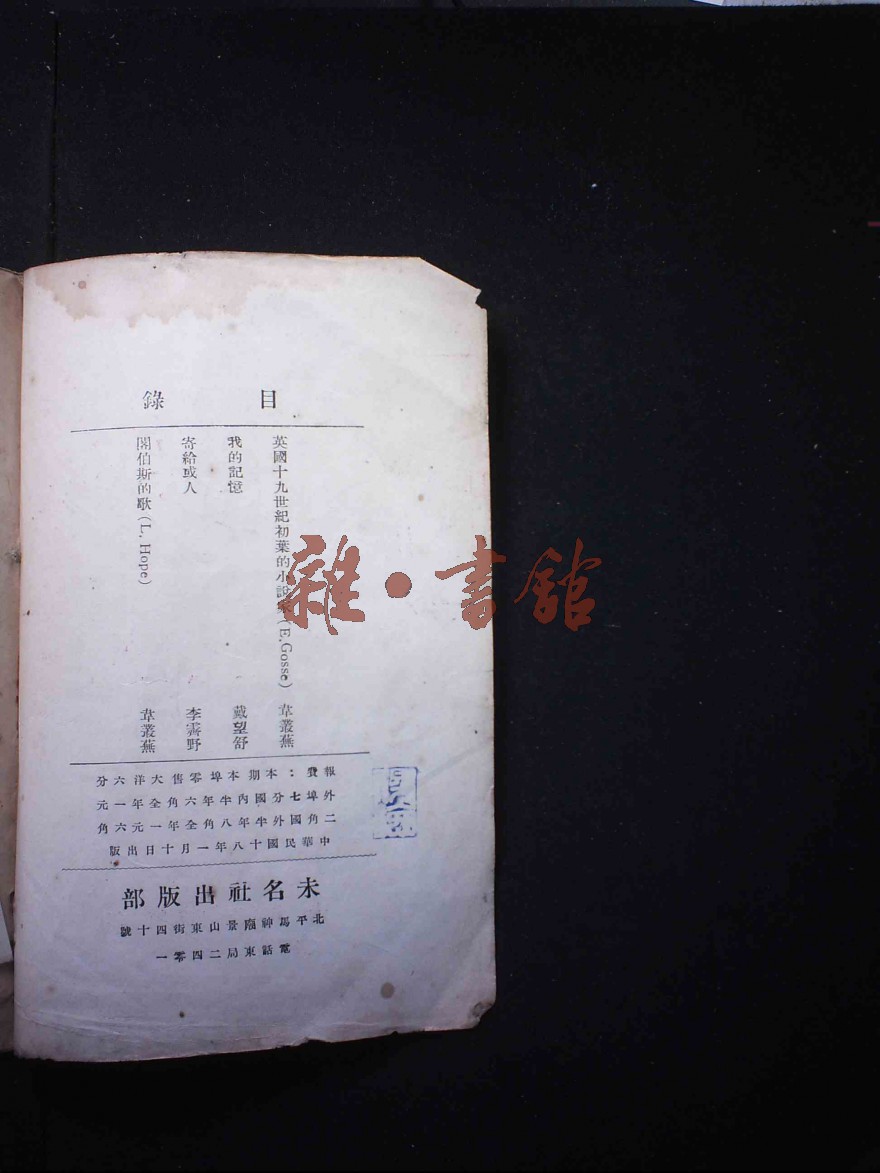 目錄
英國十九世紀初葉的小說家(E. Gosse) 韋叢蕪
我的記憶 戴望舒
寄給或人 李霽野
閣伯斯的歌(L. Hope) 韋叢蕪
報費：本期本埠零售大洋六分
外埠七分國內半年六角全年一元
二角國外半年八角全年一元六角
中華民國十八年一月十日出版
未名社出版部
北平馬神廟景山東街四十號
電話東局二四零一
雜·書館